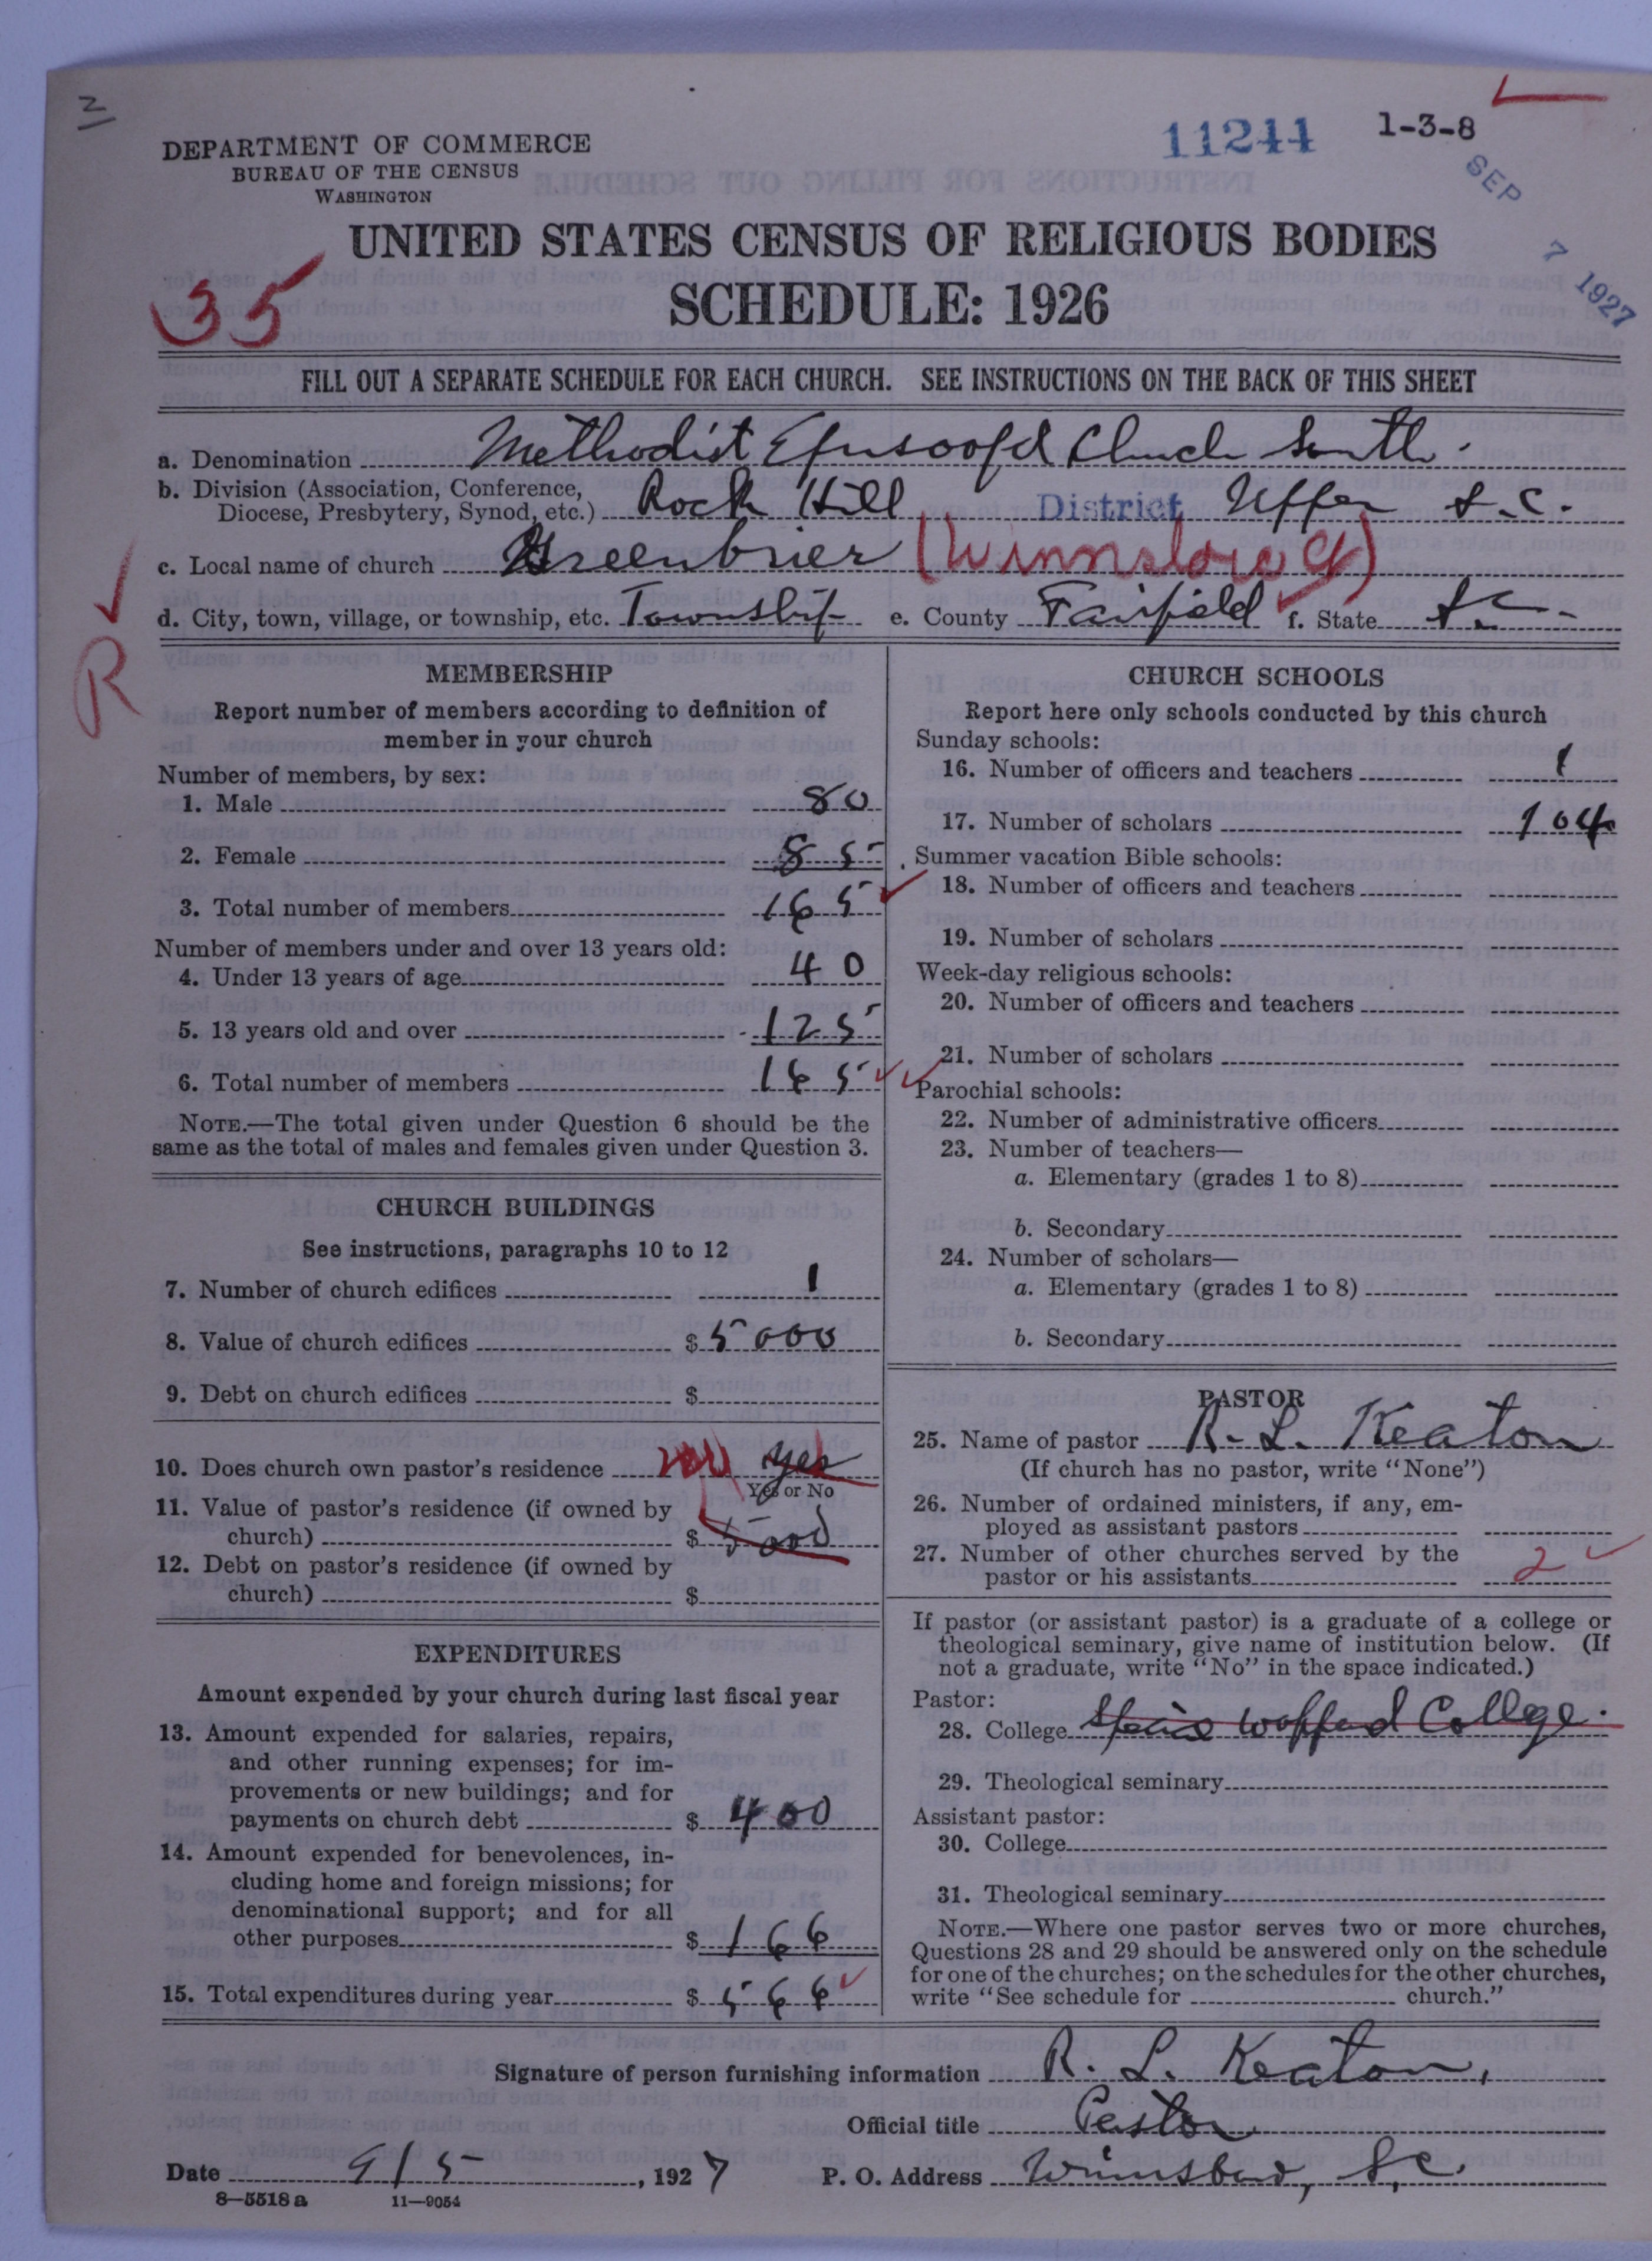 11244 1-3-8
SEP 7 1927
DEPARTMENT OF COMMERCE
BUREAU OF THE CENSUS
WASHINGTON
UNITED STATES CENSUS OF RELIGIOUS BODIES
SCHEDULE: 1926
35
FILL OUT A SEPARATE SCHEDULE FOR EACH CHURCH. SEE INSTRUCTIONS ON THE BACK OF THIS SHEET
a. Denomination Methodist Episcopal Church South
b. Division (Association, Conference,
Diocese, Presbytery, Synod, etc.) Rock Hill District Upper S.C.
c. Local name of church Greenbrier (Winnsboro
d. City, town, village, or township, etc. Township e. County Fairfield f. State S.C.
R
MEMBERSHIP
Report number of members according to definition of
member in your church
Number of members, by sex:
1. Male 80
2. Female 85
3. Total number of members 165
Number of members under and over 13 years old:
4. Under 13 years of age 40
5. 13 years old and over 125
6. Total number of members 165
NOTE.—The total given under Question 6 should be the
same as the total of males and females given under Question 3.
CHURCH BUILDINGS
See instructions, paragraphs 10 to 12
7. Number of church edifices 1
8. Value of church edifices $ 5000
9. Debt on church edifices $
10. Does church own pastor's residence yes
Yes or No
11. Value of pastor's residence (if owned by
church) $ 5000
12. Debt on pastor's residence (if owned by
church) $
EXPENDITURES
Amount expended by your church during last fiscal year
13. Amount expended for salaries, repairs,
and other running expenses; for im-
provements or new buildings; and for
payments on church debt $ 400
14. Amount expended for benevolences, in-
cluding home and foreign missions; for
denominational support; and for all
other purposes $ 166
15. Total expenditures during year $ 566
CHURCH SCHOOLS
Report here only schools conducted by this church
Sunday schools:
16. Number of officers and teachers 1
17. Number of scholars 104
Summer vacation Bible schools:
18. Number of officers and teachers
19. Number of scholars
Week-day religious schools:
20. Number of officers and teachers
21. Number of scholars
Parochial schools:
22. Number of administrative officers
23. Number of teachers—
a. Elementary (grades 1 to 8)
b. Secondary
24. Number of scholars—
a. Elementary (grades 1 to 8)
b. Secondary
PASTOR
25. Name of pastor R. L. Keaton
(If church has no pastor, write "None")
26. Number of ordained ministers, if any, em-
ployed as assistant pastors
27. Number of other churches served by the
pastor or his assistants 2
If pastor (or assistant pastor) is a graduate of a college or
theological seminary, give name of institution below. (If
not a graduate, write "No" in the space indicated.)
Pastor:
28. College Wofford College.
29. Theological seminary
Assistant pastor:
30. College
31. Theological seminary
NOTE.—Where one pastor serves two or more churches,
Questions 28 and 29 should be answered only on the schedule
for one of the churches; on the schedules for the other churches,
write "See schedule for church."
Signature of person furnishing information R. L. Keaton,
Official title Pastor
Date 9/5, 1927 P. O. Address Winnsboro, S.C.
8—5518 a 11—9054